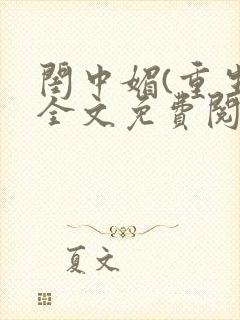 閨中媚(重生
全文免費閱
夏文